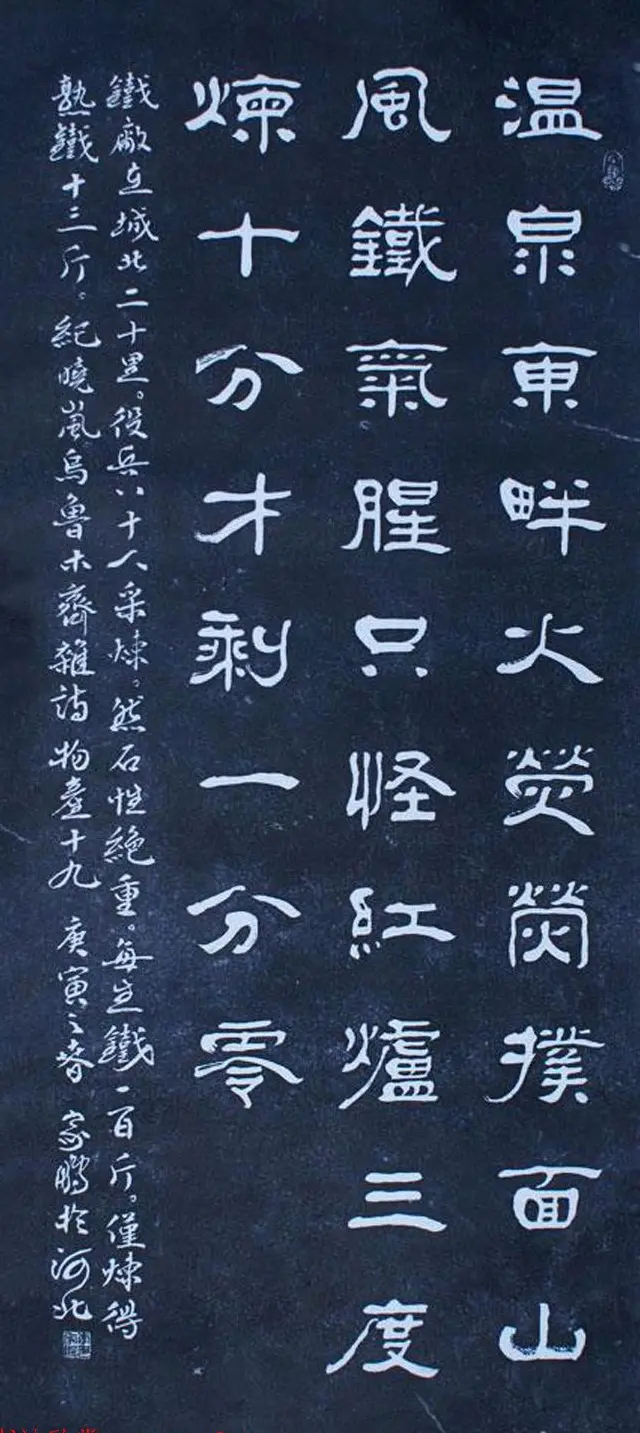 温泉東畔火熒熒撲面山
風鐵氣腥只怪紅爐三度
煉十分才剩一分零
鐵廠在城北二十里。役兵八十人采煉。然石性絶重。每生鐵一百斤。僅煉得
熟鐵十三斤。紀曉嵐烏魯木齊雜詩物產十九 庚寅之春 家鵬於河北